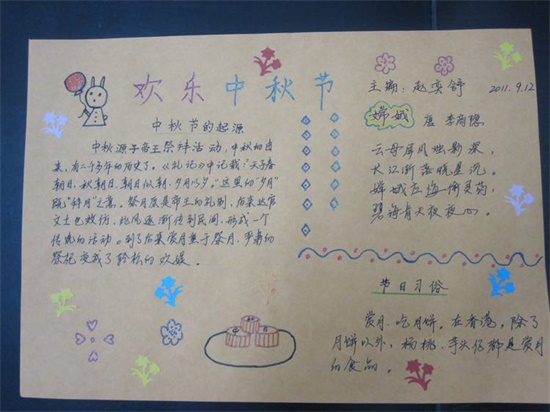 欢乐中秋节
主编：赵奕舒 2011.9.12
中秋节的起源
中秋源于帝王祭拜活动，中秋的由
来，有二千多年的历史了。《礼记》中记载“天子春
朝日，秋朝日，朝日以朝，夕月以夕。”这里的“夕月”
既“拜月”之意。祭月原是帝王的礼制，后来达官
文士也效仿，此风逐渐传到民间，形成一个
传统的活动。到了后来赏月重于祭月，严肃的
祭祀变成了轻松的欢娱。
嫦娥 唐 李商隐
云母屏风烛影深，
长江渐落晓星沉。
嫦娥应悔偷灵药，
碧海青天夜夜心。
节日习俗
赏月、吃月饼。在香港，除了
月饼以外，杨桃、芋头仔都是赏月
的食品。